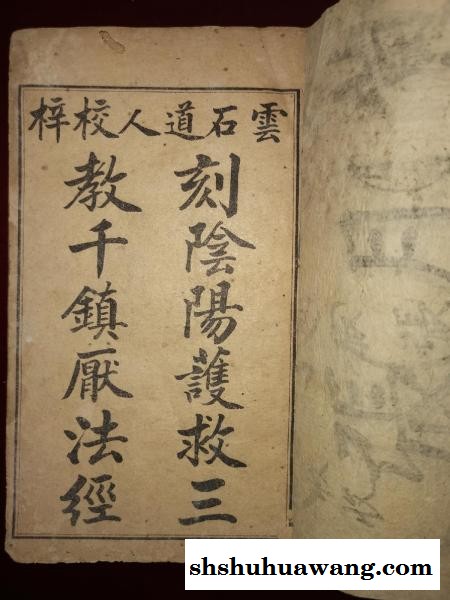 雲石道人校梓
刻陰陽護救三
教千鎮厭法經
shshuhuawang.com